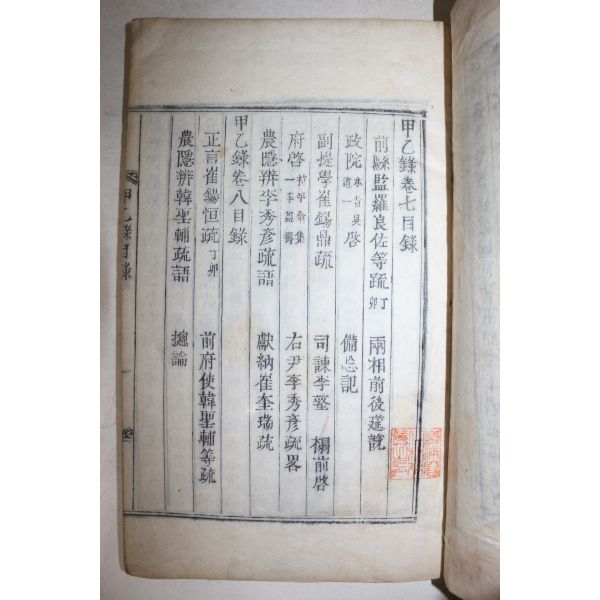 甲乙錄卷七目錄
前縣監羅良佐等疏 丁卯 兩相前後筵說
政院 啓 備忘記
副提學崔錫鼎疏 司諫李墪 榻前啓
府啓 右尹李秀彥疏畧
農隱辨李秀彥疏語 獻納崔奎瑞疏
甲乙錄卷八目錄
正言崔錫恒疏 丁卯 前府使韓聖輔等疏
農隱辨韓聖輔疏語 摠論
甲乙錄目錄 一